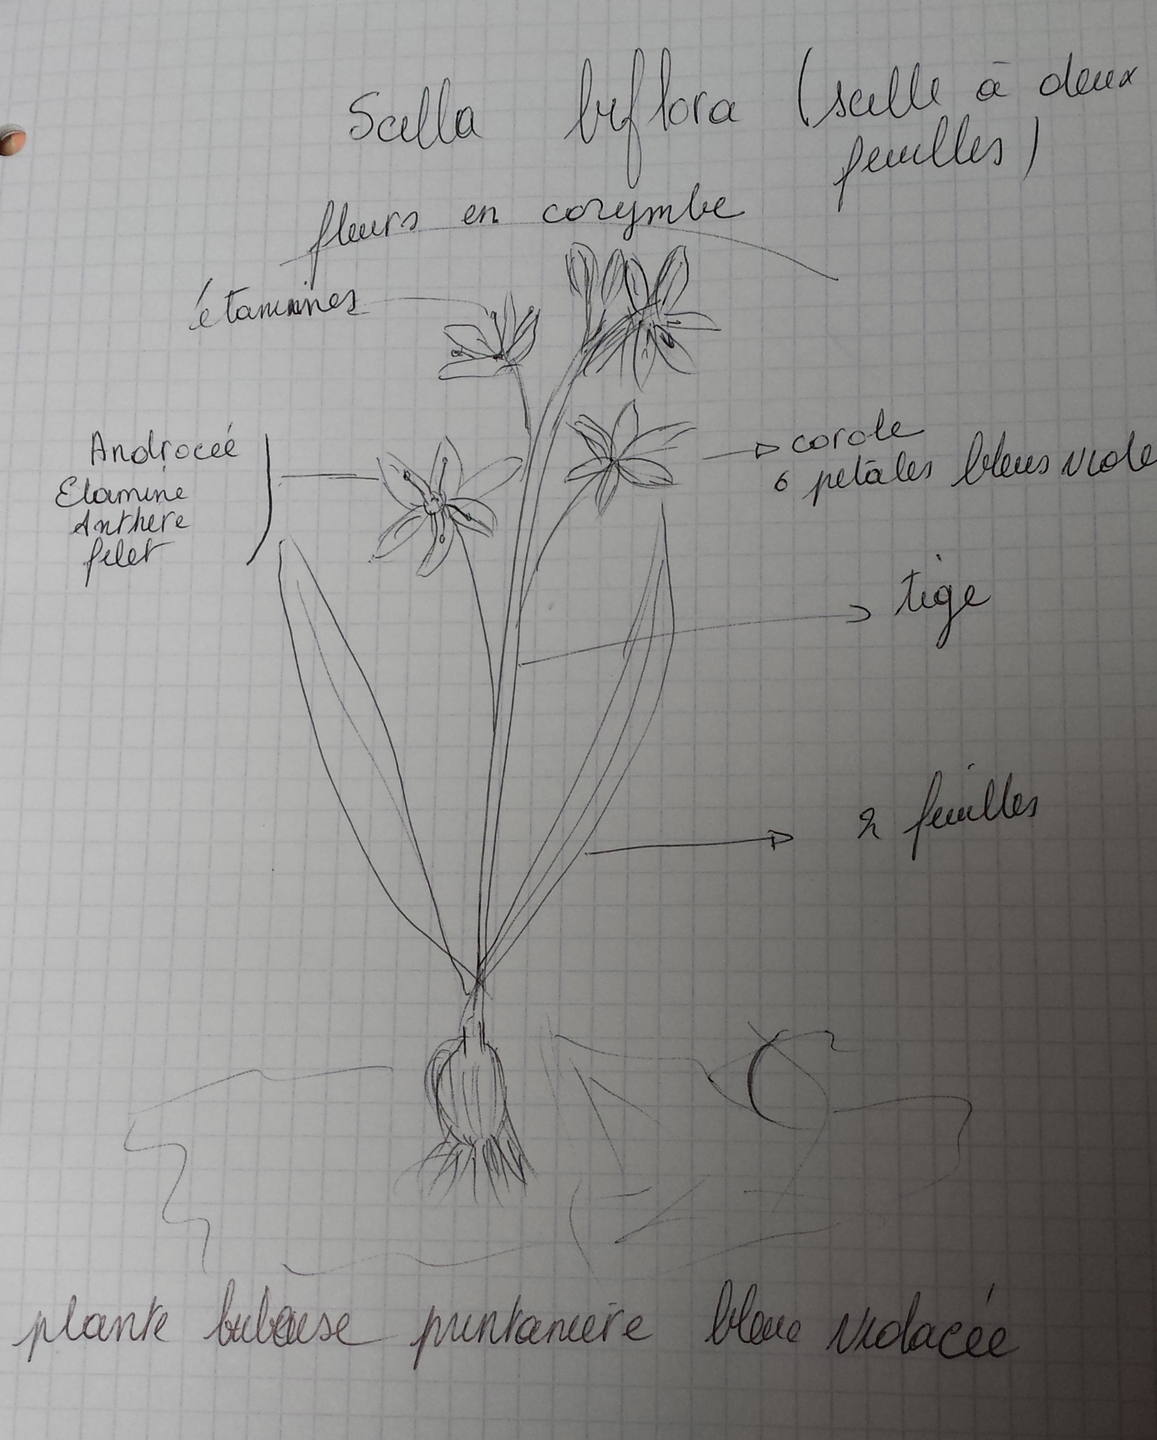 Scilla biflora (scille à deux
feuilles)
fleurs en corymbe
étamines
Androceé
Etamine
Anthère
filet
corole
6 pétales bleus viole
tige
2 feuilles
plante bulbeuse printaniere bleue violacée